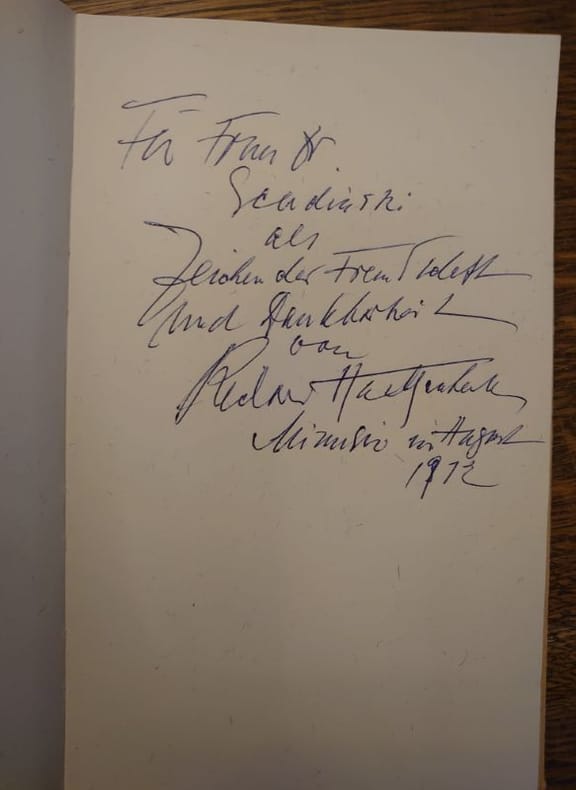 Für Frau Dr.
als
Zeichen der Freundschaft
und Dankbarkeit
von
Richard Huelsenbeck
Minusio im August
1972